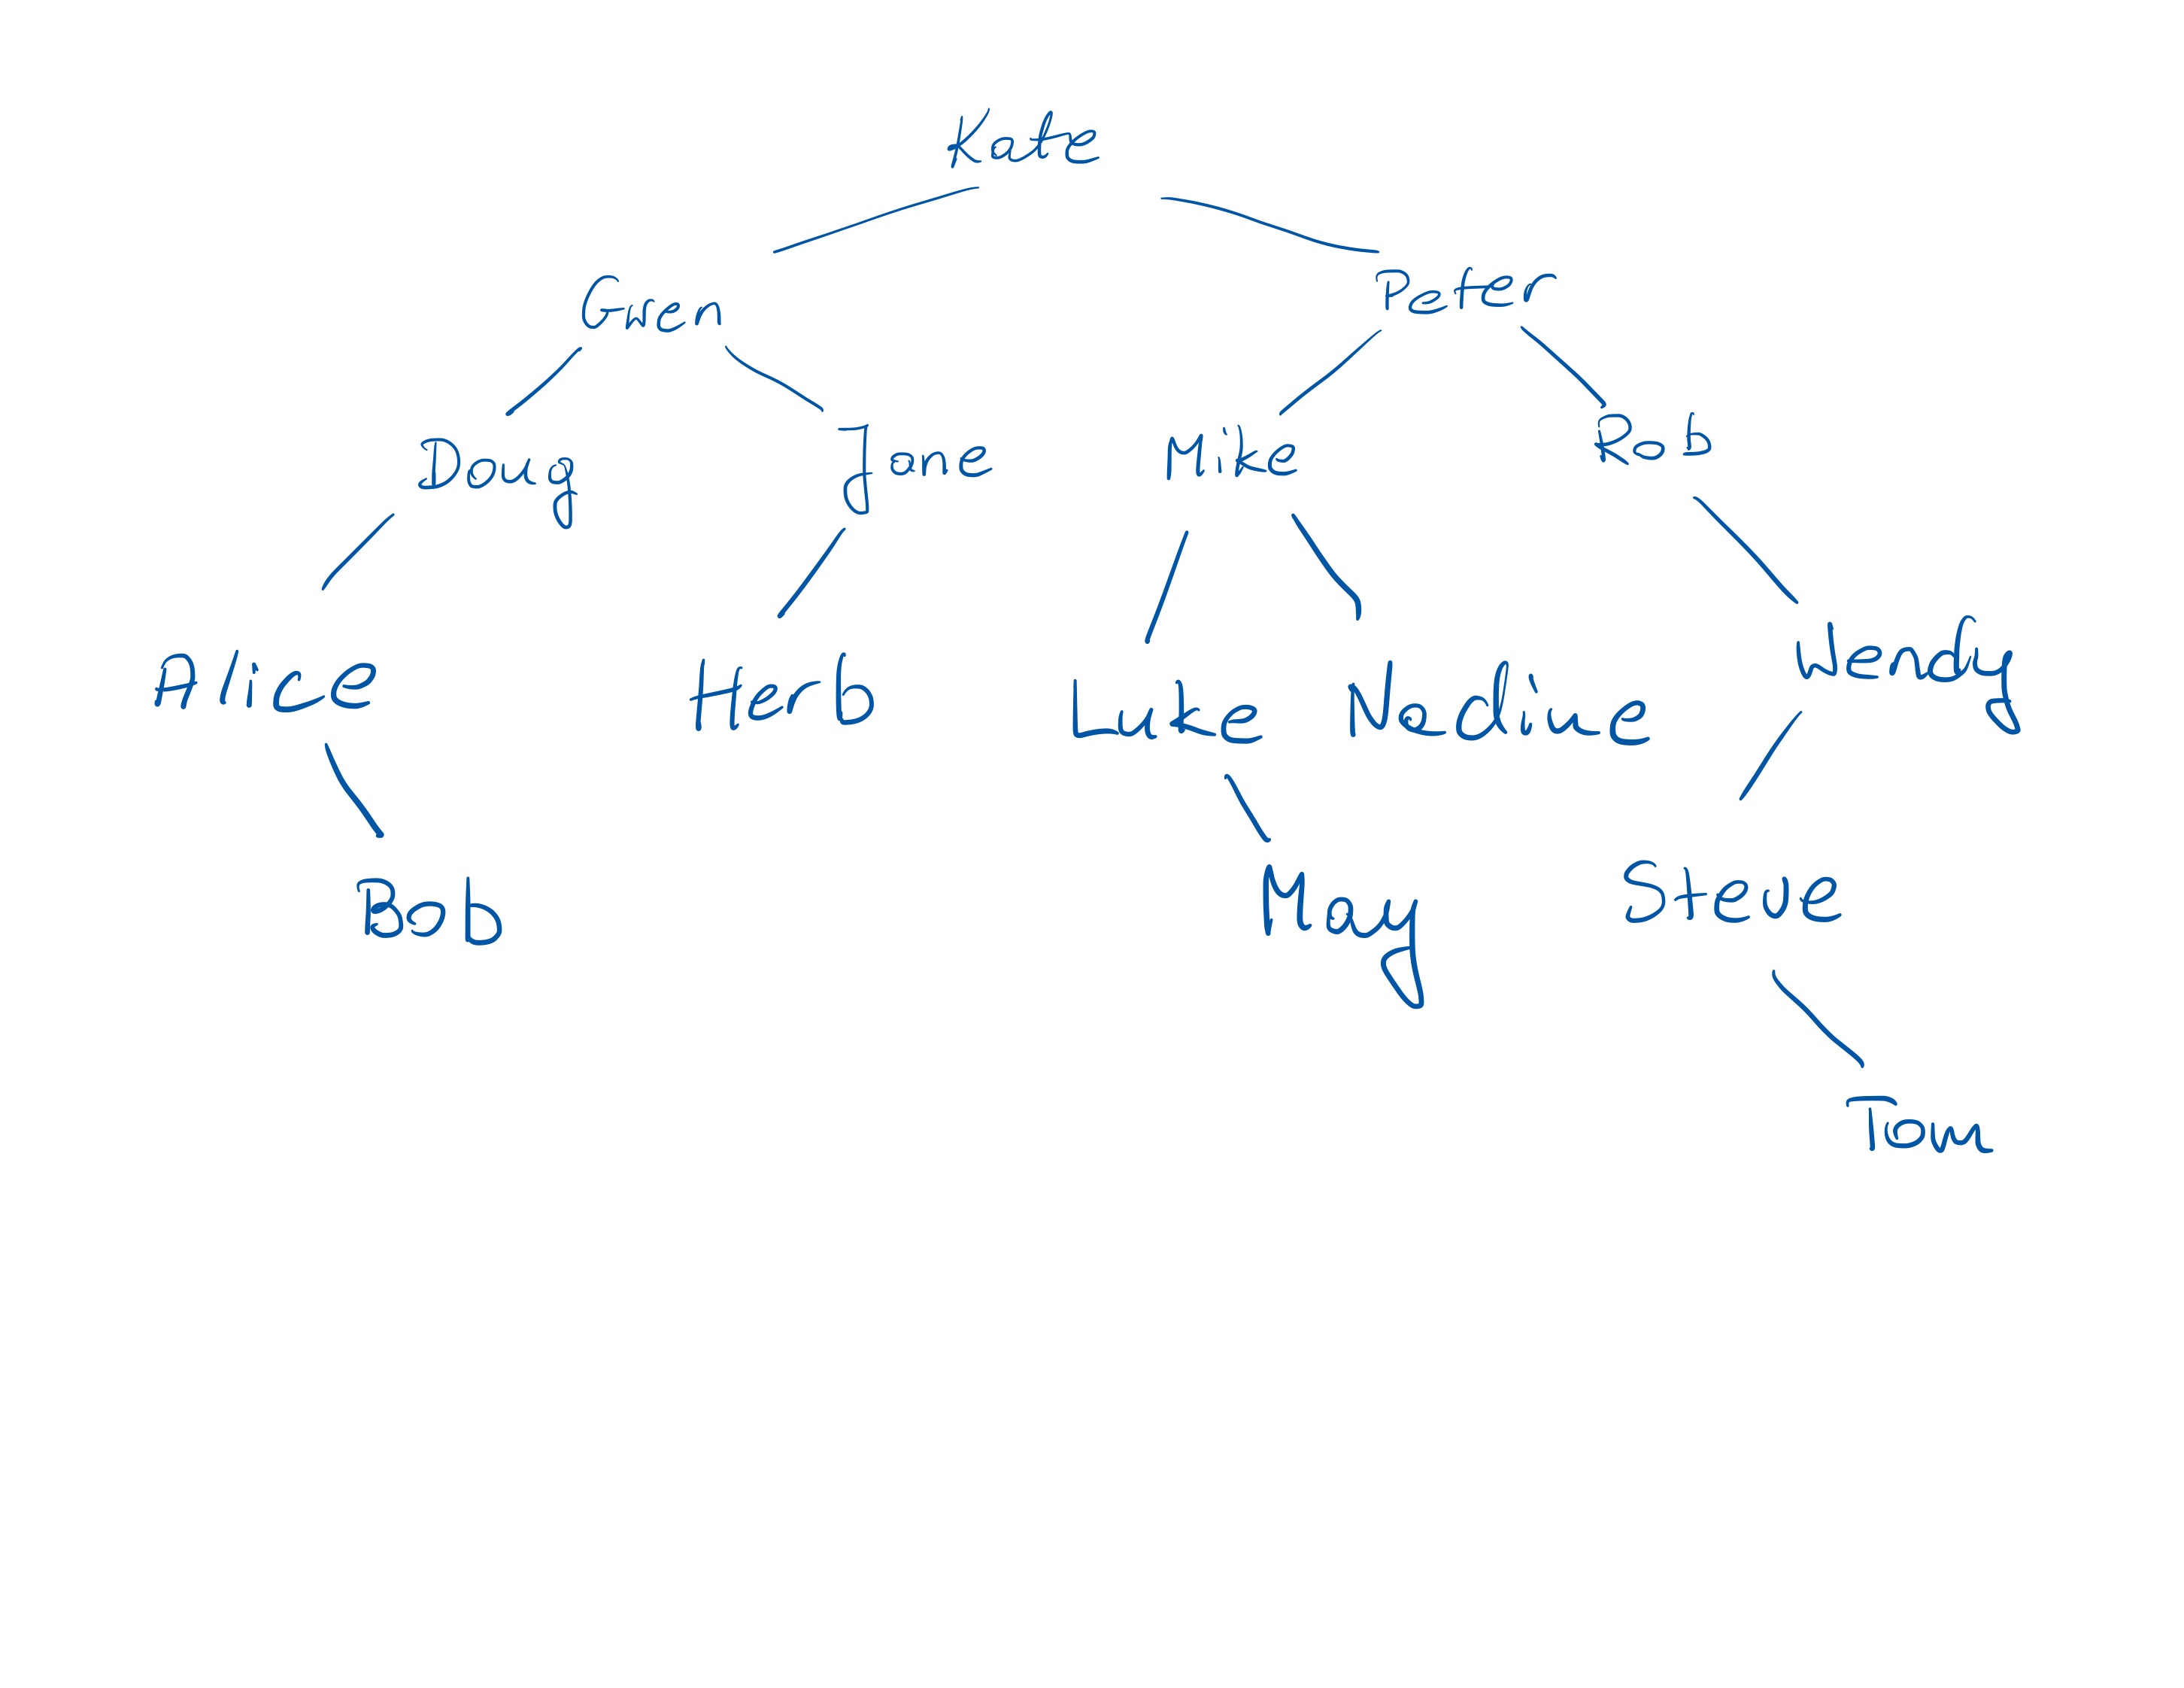 Kate
Gwen Peter
Doug Jane Mike Rob
Alice Herb Luke Nadine Wendy
Bob May Steve
Tom